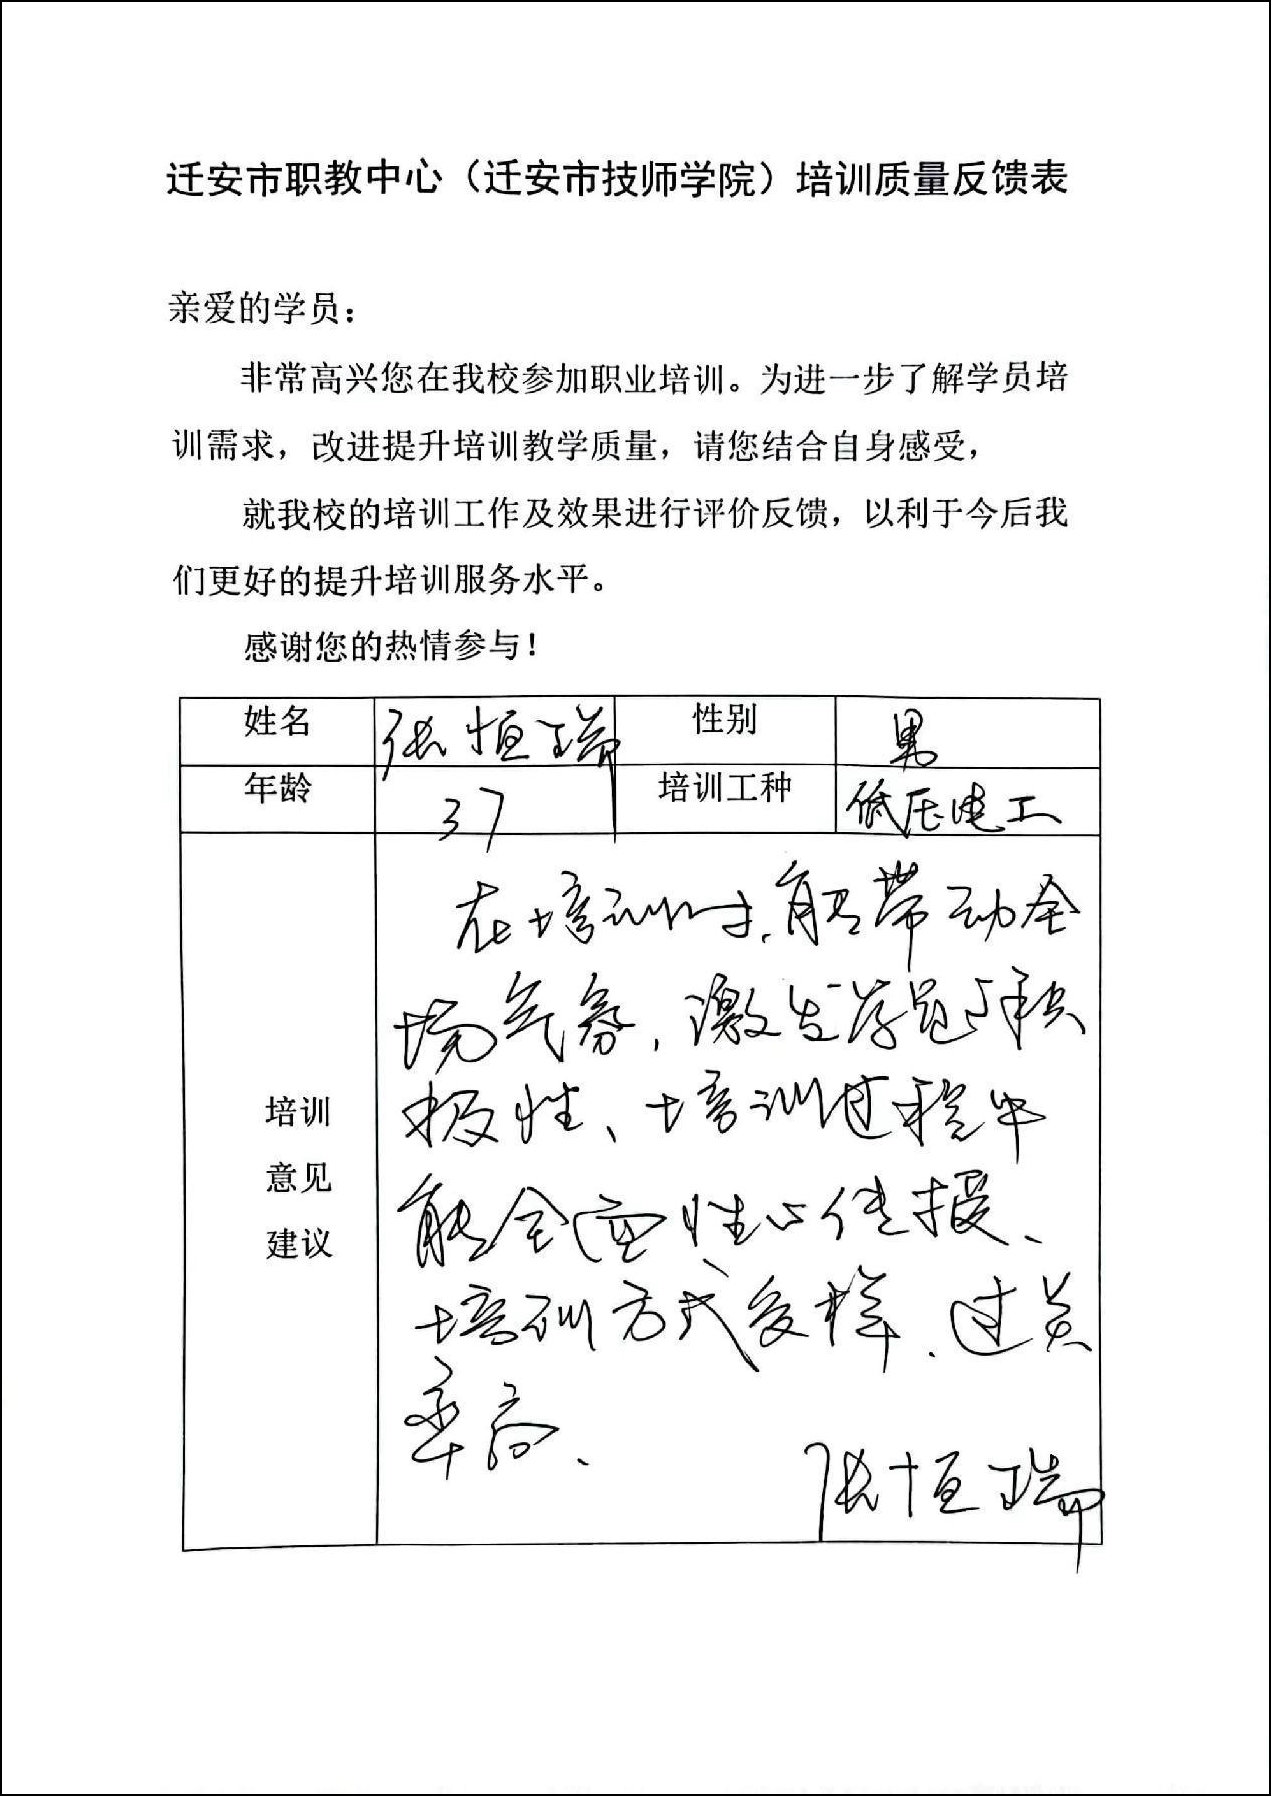 迁安市职教中心（迁安市技师学院）培训质量反馈表
亲爱的学员：
非常高兴您在我校参加职业培训。为进一步了解学员培
训需求，改进提升培训教学质量，请您结合自身感受，
就我校的培训工作及效果进行评价反馈，以利于今后我
们更好的提升培训服务水平。
感谢您的热情参与！
姓名 张恒瑞 性别 男
年龄 37 培训工种 低压电工
培训
意见
建议
在培训时，能带动全
场气氛，激发学员的积
极性、培训过程中
能全面性的传授、
培训方式多样．过关
率高、
张恒瑞